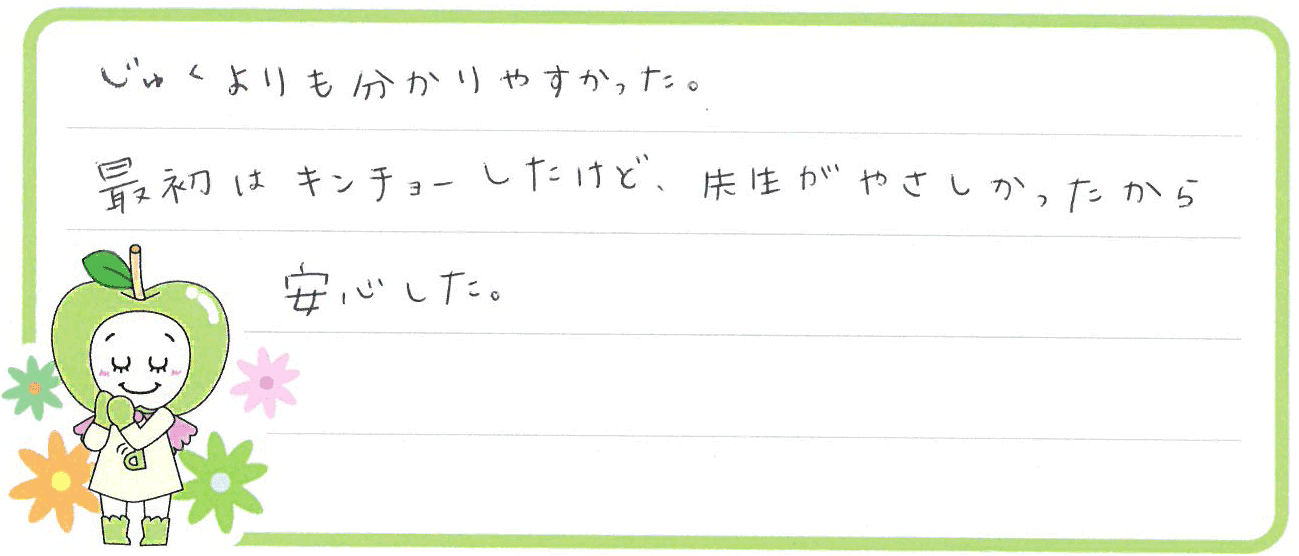 じゅくよりも分かりやすかった。
最初はキンチョーしたけど、先生がやさしかったから
安心した。